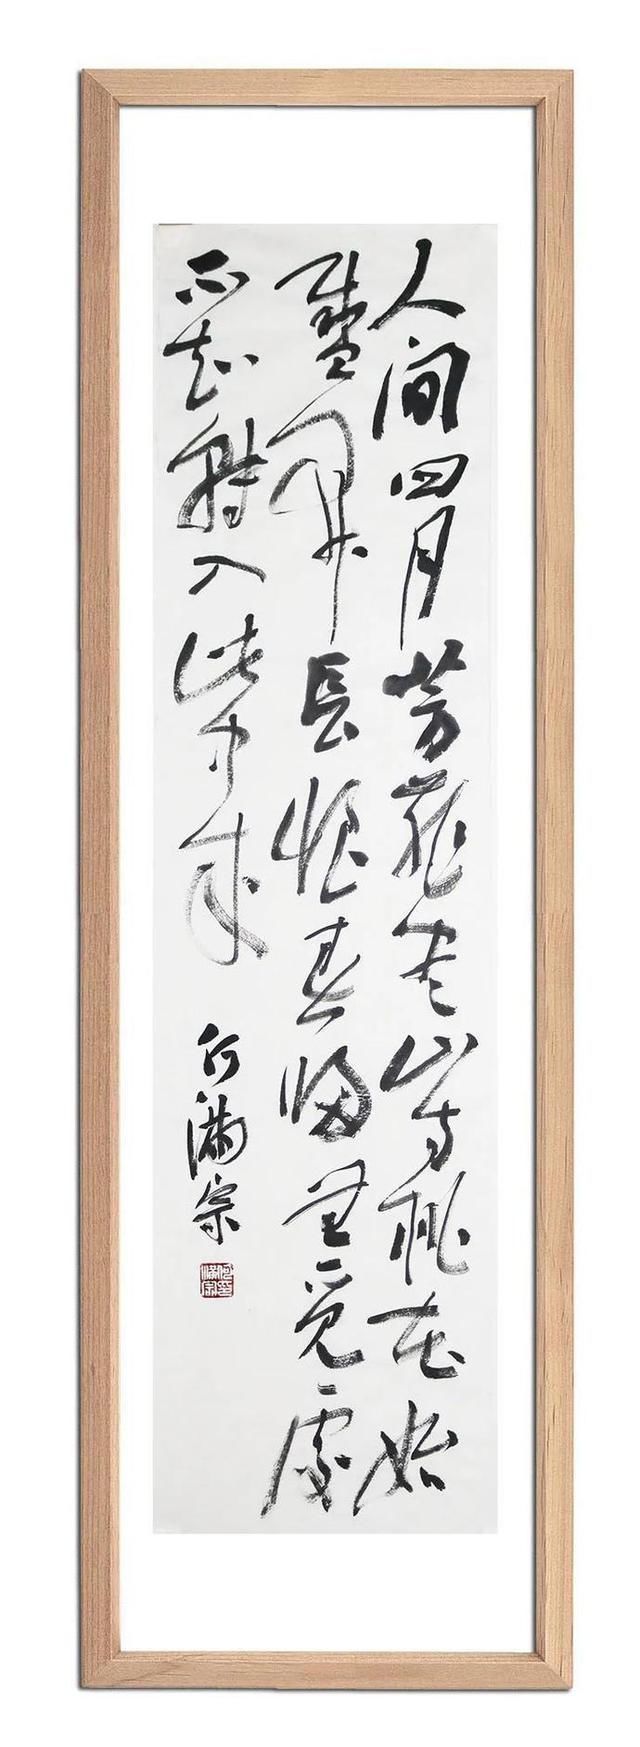 人间四月芳菲尽山寺桃花始
盛開長恨春歸无覓處
不知轉入此中来
何满宗